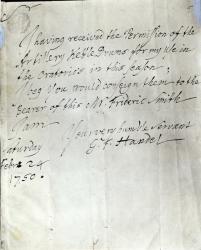 I having received the Permission of the
Artillery Kettle Drums for my use in
the Oratorio's in this Season
I beg you would consign them to the
Bearer of this Mr. Frideric Smith
I am
Your very humble Servant
Saturday
G. F. Handel
Febr: 24
1750.